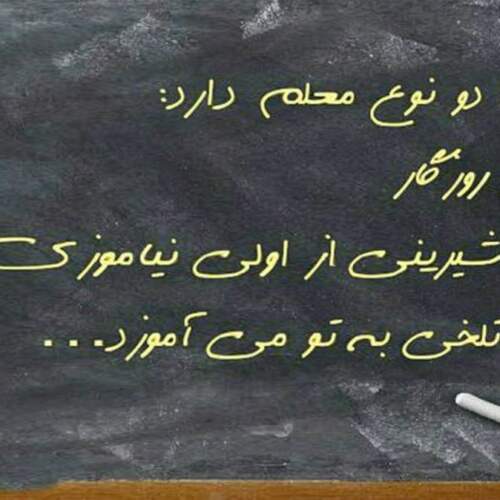 دو نوع معلم دارد:
روزگار
شیرینی از اولی نیاموزی
تلخی به تو می آموزد...